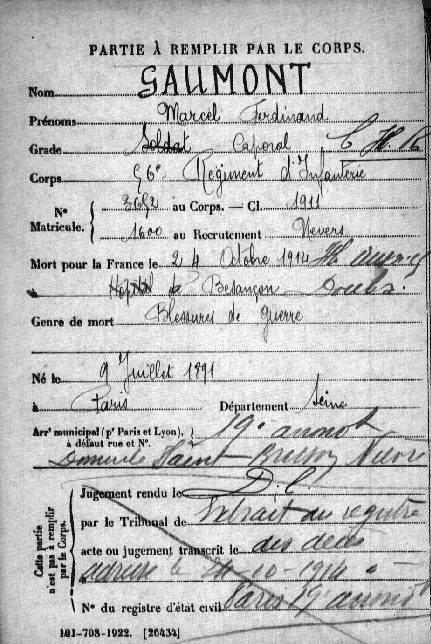 PARTIE À REMPLIR PAR LE CORPS.
Nom GAUMONT
Prénoms Marcel Ferdinand
Grade Soldat Caporal
Corps 56e Régiment d'Infanterie
N° Matricule. 3652 au Corps. — Cl. 1911
1600 au Recrutement Nevers
Mort pour la France le 24 Octobre 1914
à Hôpital de Besançon Doubs.
Genre de mort Blessures de Guerre
Né le 9 Juillet 1891
à Paris Département Seine
Arrt municipal (pr Paris et Lyon), à défaut rue et N°. 19e arrondt
Domicile Saint-Brisson Nièvre
Cette partie n'est pas à remplir par le Corps.
Jugement rendu le D.C
par le Tribunal de Extrait du registre
acte ou jugement transcrit le des décès
adressé le 4-10-1914 à
N° du registre d'état civil Paris 19e arrondt
101-708-1922. [26434]